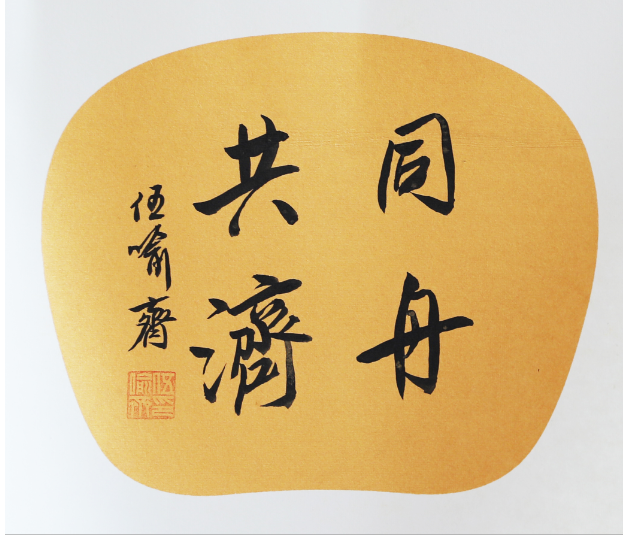 同舟
共濟
伍喻齋